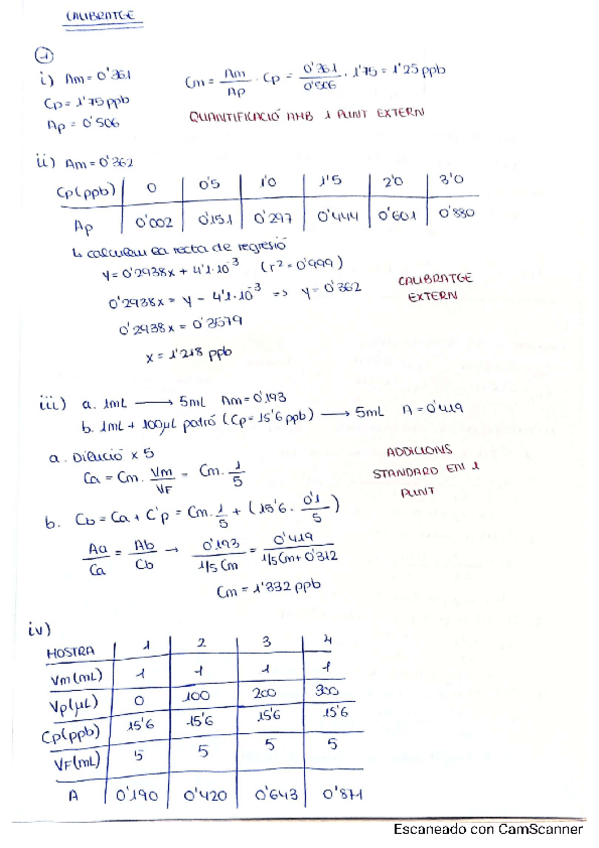 CALIBRATGE
1
i) Am = 0'361
Cm = Am/Ap · Cp = 0'361/0'506 · 1'75 = 1'25 ppb
Cp = 1'75 ppb
Ap = 0'506
QUANTIFICACIÓ AMB 1 PUNT EXTERN
ii) Am = 0'362
Cp (ppb) 0 0'5 1'0 1'5 2'0 3'0
Ap 0'002 0'151 0'297 0'444 0'601 0'880
↳ calculem la recta de regresió
y = 0'2938x + 4'1·10⁻³ (r² = 0'999)
0'2938x = y - 4'1·10⁻³ => y = 0'362
0'2938x = 0'3579
x = 1'218 ppb
CALIBRATGE
EXTERN
iii) a. 1mL → 5mL Am = 0'193
b. 1mL + 100µL patró (Cp = 15'6 ppb) → 5mL A = 0'419
a. Dilució x 5
Ca = Cm · Vm/VF = Cm · 1/5
ADDICIONS
STANDARD EN 1
PUNT
b. Cb = Ca + C'p = Cm · 1/5 + (15'6 · 0'1/5)
Aa/Ca = Ab/Cb → 0'193/(1/5 Cm) = 0'419/(1/5 Cm + 0'312)
Cm = 1'332 ppb
iv)
MOSTRA 1 2 3 4
Vm (mL) 1 1 1 1
Vp (µL) 0 100 200 300
Cp (ppb) 15'6 15'6 15'6 15'6
VF (mL) 5 5 5 5
A 0'190 0'420 0'643 0'871
Escaneado con CamScanner